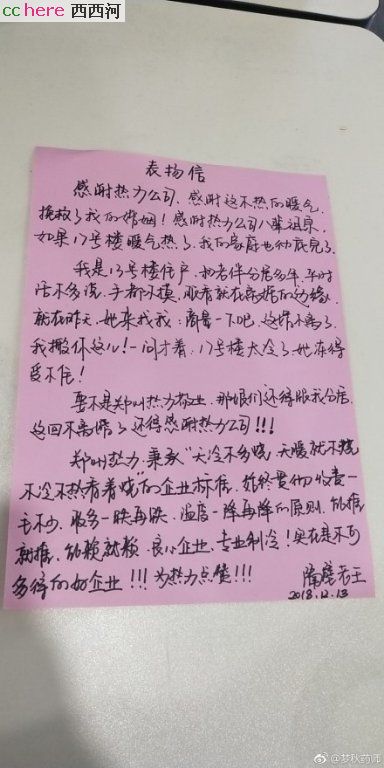 cchere 西西河
表扬信
感谢热力公司，感谢这不热的暖气，
挽救了我的婚姻！感谢热力公司八辈祖宗，
如果17号楼暖气热了，我的家庭也彻底完了。
我是13号楼住户，和老伴分居多年，平时
话不多说，手都不摸，眼看就在离婚的边缘，
就在昨天，她来找我：商量一下吧，这婚不离了，
我搬你这儿！一问才着，17号楼太冷了，她冻得
受不住！
要不是郑州热力有业，那娘们还得跟我分居，
这回不离婚了还得感谢热力公司！！！
郑州热力，秉承“天冷不多烧，天暖就不烧，
不冷不热看着烧”的企业标准，始终贯彻收费一
毛不少，服务一跌再跌，温度一降再降的原则，能推
就推，能赖就赖，良心企业，专业制冷！实在是不可
多得的好企业！！！为热力点赞！！！
隔壁老王
2018.12.13
@梦秋药师